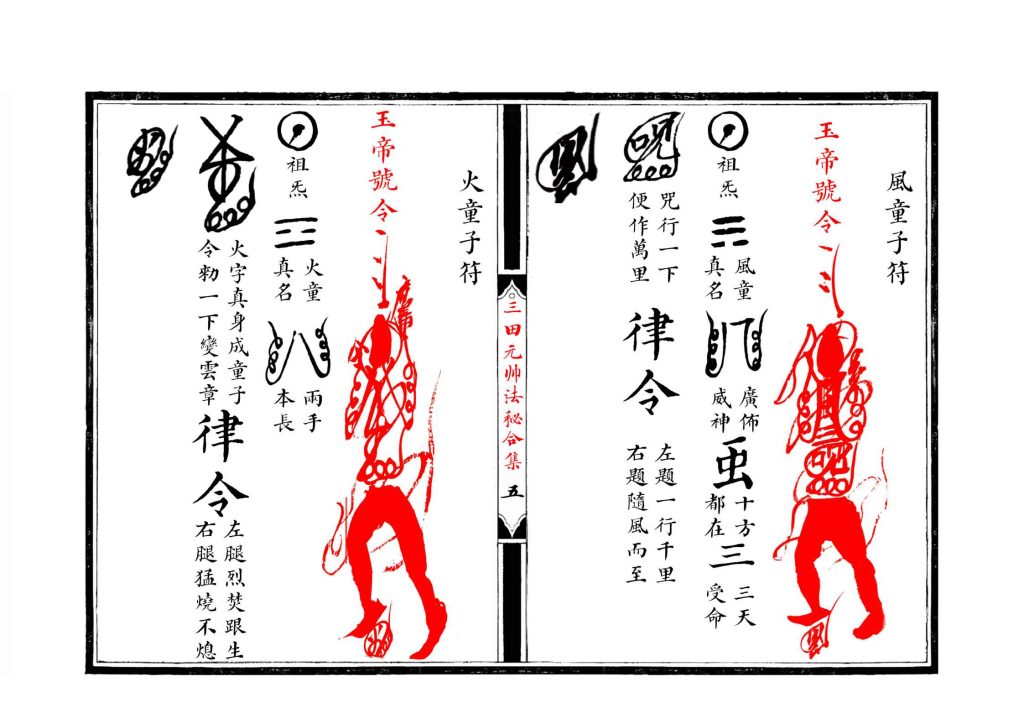 風童子符
玉帝號令
祖炁
風童
真名
廣佈
威神
虫
十方
都在
三
三天
受命
咒行一下
便作萬里
律令
左題一行千里
右題隨風而至
三田元帅法秘合集 五
火童子符
玉帝號令
祖炁
火童
真名
兩手
本長
火字真身成童子
令勑一下變雲章
律令
左腿烈焚跟生
右腿猛燒不熄